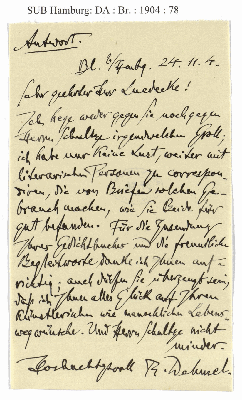 SUB Hamburg: DA : Br. : 1904 : 78
Antwort.
Bl. b/Hmbg. 24.11.4.
Sehr geehrter Herr Luedecke!
Ich hege weder gegen Sie noch gegen
Herrn Schultze irgendwelchen Groll;
ich habe nur keine Lust, weiter mit
literarischen Personen zu correspon-
diren, die von Briefen solchen Ge-
brauch machen, wie Sie Beide für
gut befanden. Für die Zusendung
Ihrer Gedichtbücher und die freundlichen
Begleitworte danke ich Ihnen auf-
richtig; auch dürfen Sie überzeugt sein,
daß ich Ihnen alles Glück auf Ihrem
künstlerischen wie menschlichen Lebens-
weg wünsche. Und Herrn Schultze nicht
minder.
Hochachtungsvoll R. Dehmel.